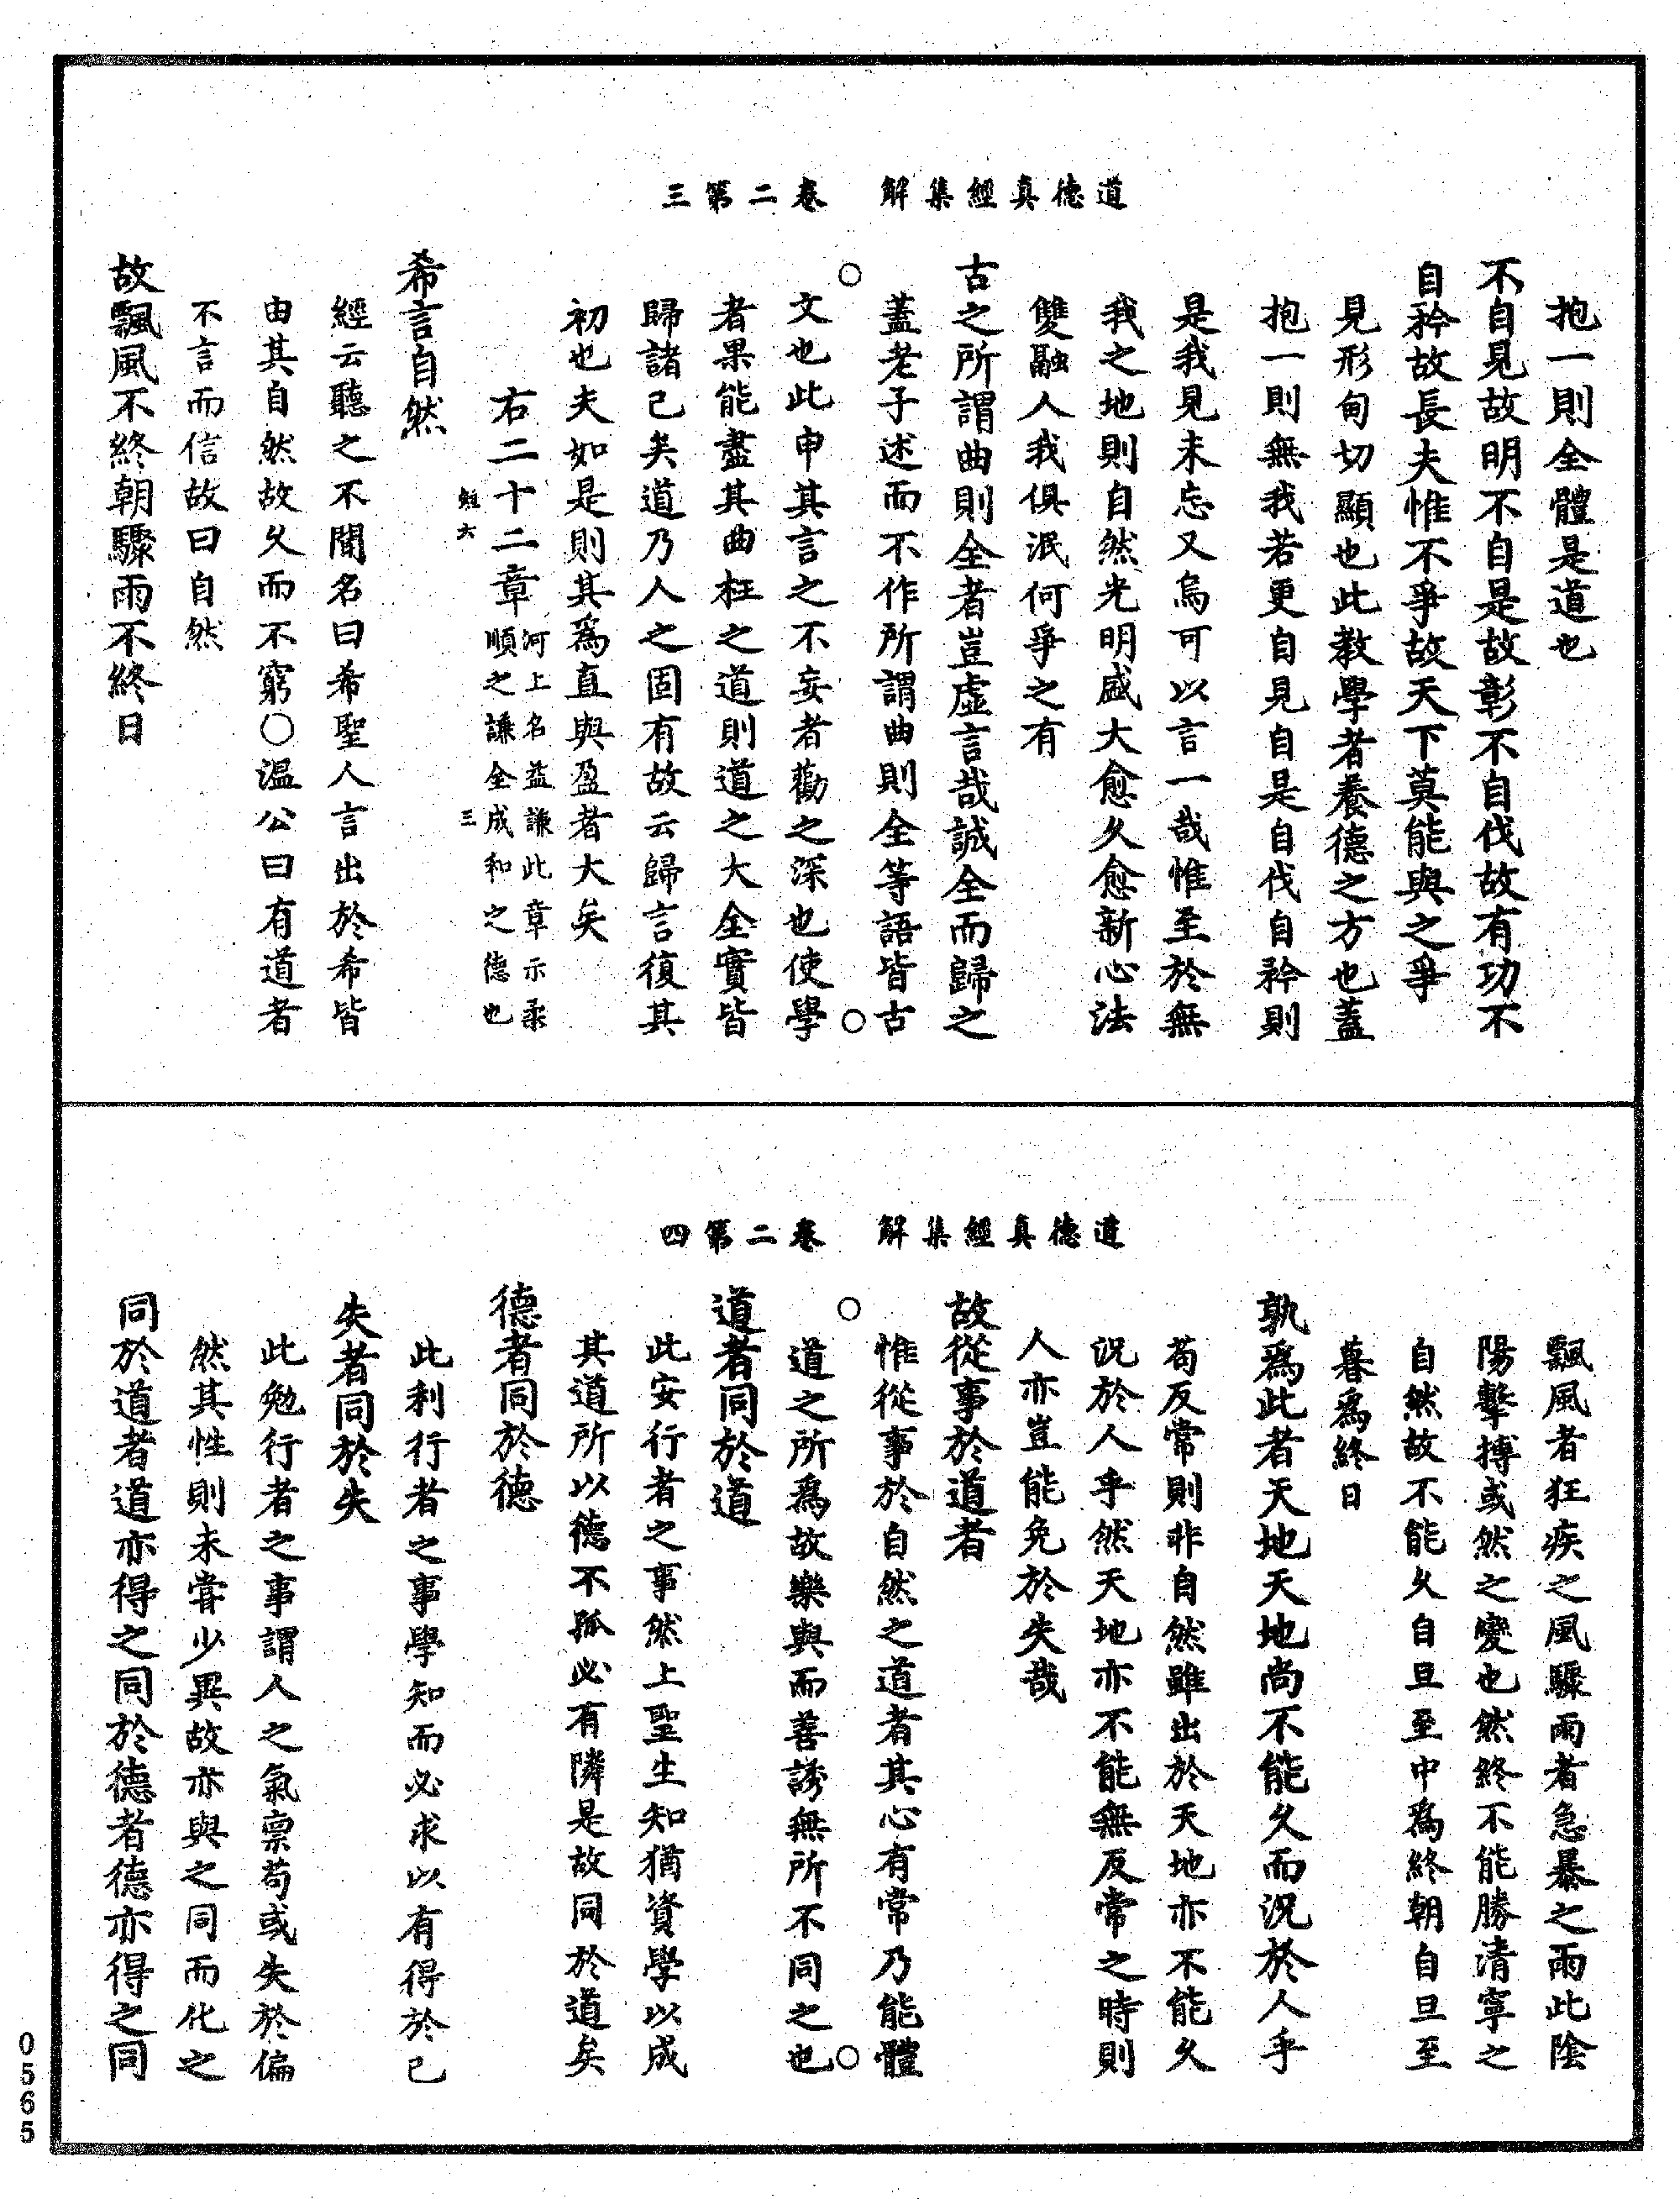 道德真經集解　卷二第三
抱一則全體是道也
不自見故明不自是故彰不自伐故有功不
自矜故長夫惟不爭故天下莫能與之爭
見形甸切顯也此教學者養德之方也蓋
抱一則無我若更自見自是自伐自矜則
是我見未忘又烏可以言一哉惟至於無
我之地則自然光明盛大愈久愈新心法
雙融人我俱泯何爭之有
古之所謂曲則全者豈虛言哉誠全而歸之
蓋老子述而不作所謂曲則全等語皆古
○　○
文也此申其言之不妄者勸之深也使學
者果能盡其曲枉之道則道之大全實皆
歸諸己矣道乃人之固有故云歸言復其
初也夫如是則其為直與盈者大矣
右二十二章河上名益謙此章示柔
順之謙全成和之德也
六　三
希言自然
經云聽之不聞名曰希聖人言出於希皆
由其自然故久而不窮○溫公曰有道者
不言而信故曰自然
故飄風不終朝驟雨不終日
道德真經集解　卷二第四
飄風者狂疾之風驟雨者急暴之雨此陰
陽擊搏或然之變也然終不能勝清寧之
自然故不能久自旦至中為終朝自旦至
暮為終日
孰為此者天地天地尚不能久而況於人乎
苟反常則非自然雖出於天地亦不能久
況於人乎然天地亦不能無反常之時則
人亦豈能免於失哉
故從事於道者
惟從事於自然之道者其心有常乃能體
○　○
道之所為故樂與而善誘無所不同之也
道者同於道
此安行者之事然上聖生知猶資學以成
其道所以德不孤必有隣是故同於道矣
德者同於德
此利行者之事學知而必求以有得於己
失者同於失
此勉行者之事謂人之氣禀苟或失於偏
然其性則未甞少異故亦與之同而化之
同於道者道亦得之同於德者德亦得之同
0565